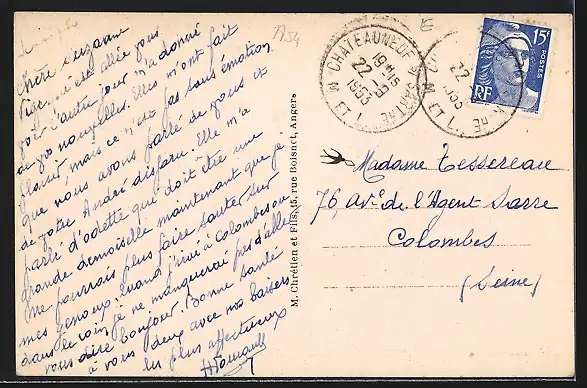 1954
Chère Suzanne
qui est allée vous
voir l'autre jour m'a donné
de vos nouvelles. Elles m'ont fait
plaisir, mais ce n'est pas sans émotion
que nous avons parlé de vous et
de votre André disparu. Elle m'a
parlé d'Odette qui doit être une
grande demoiselle maintenant que je
ne pourrais plus faire sauter sur
mes genoux. Quand j'irai à Colombes ou
dans le coin, je ne manquerai pas d'aller
vous dire bonjour. Bonne santé
à vous deux avec nos baisers
les plus affectueux
M. Chrétien et Fils, 15, rue Boisnet, Angers
CHATEAUNEUF S SARTHE
19H15
22-9
1955
M. ET L.
22
1955
M. ET L.
15F
POSTES
RF
Madame Tessereau
76 Av. de l'Agent Sarre
Colombes
(Seine)